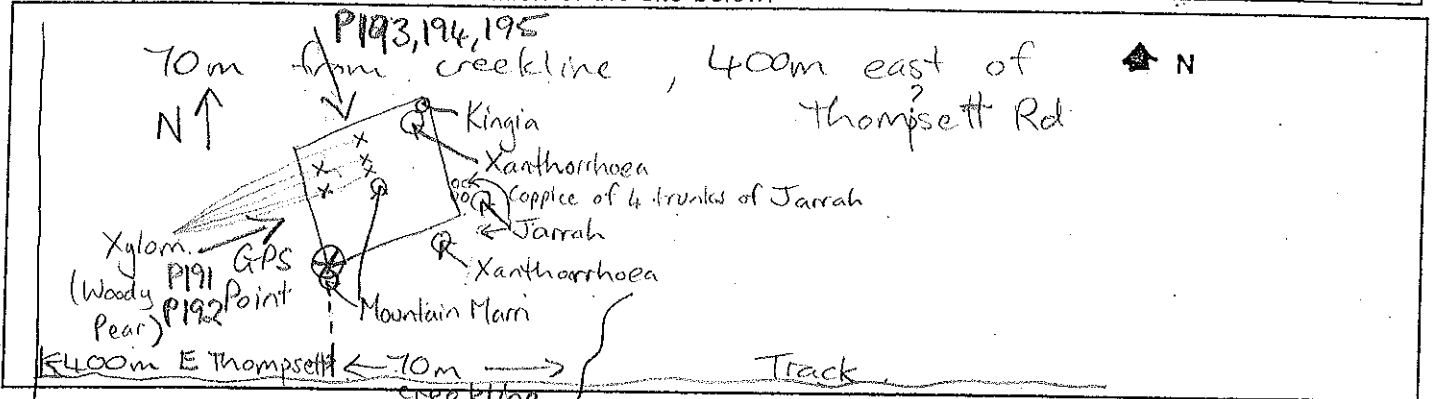 P193,194,195
70m from creekline, 400m east of
Thompsett Rd
?
N
N
Kingia
Xanthorrhoea
Coppice of 4 trunks of Jarrah
Jarrah
Xanthorrhoea
Xylom.
(Woody
Pear)
P191
P192
GPS
Point
Mountain Marri
400m E Thompsett
70m
creekline
Track